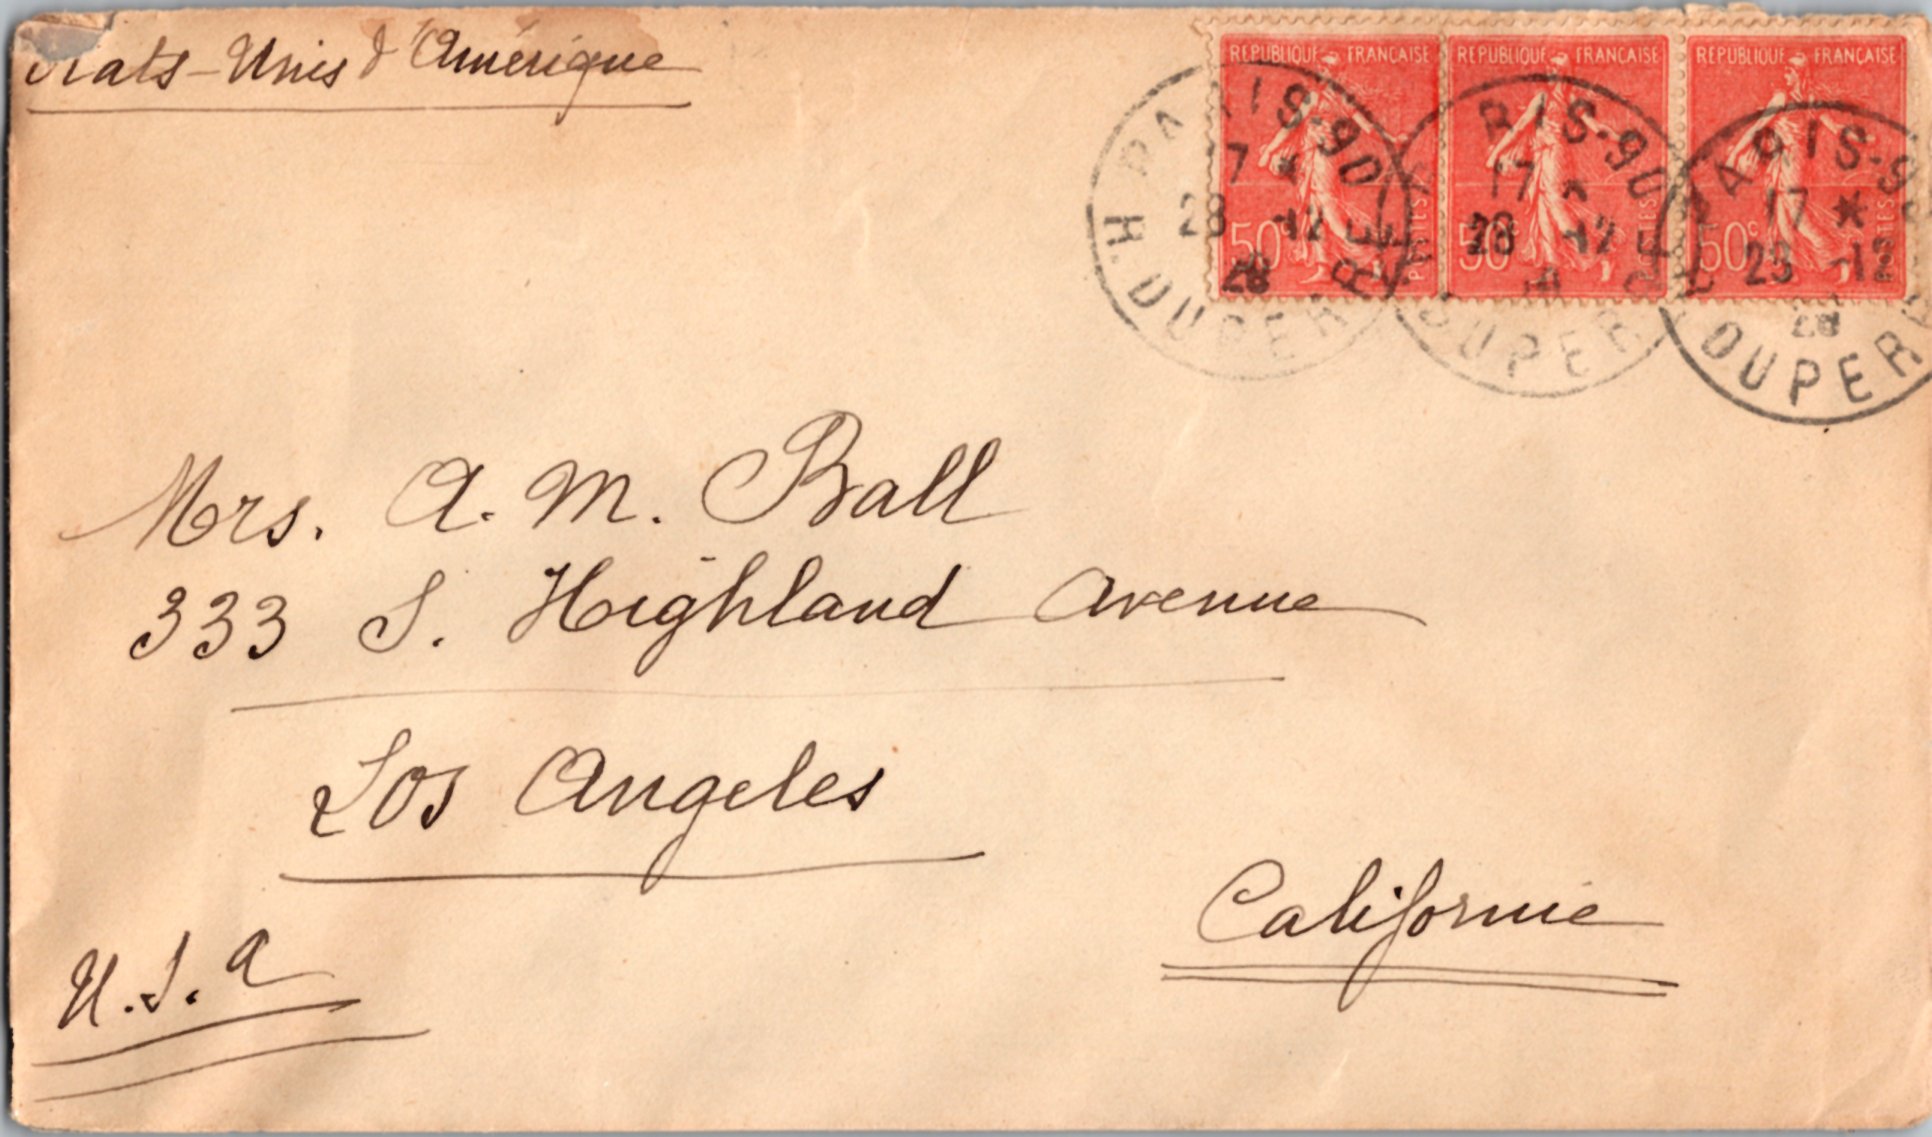 Etats-Unis d'Amérique
REPUBLIQUE FRANÇAISE REPUBLIQUE FRANÇAISE REPUBLIQUE FRANÇAISE
50c 50c 50c
POSTES
PARIS-90
7 *
28 -12
28
R. DUPERRÉ
RIS-90
17
28 -12
DUPER
PARIS-9
17 *
28 -12
28
DUPER
Mrs. A. M. Ball
333 S. Highland Avenue
Los Angeles
Californie
U.S.A